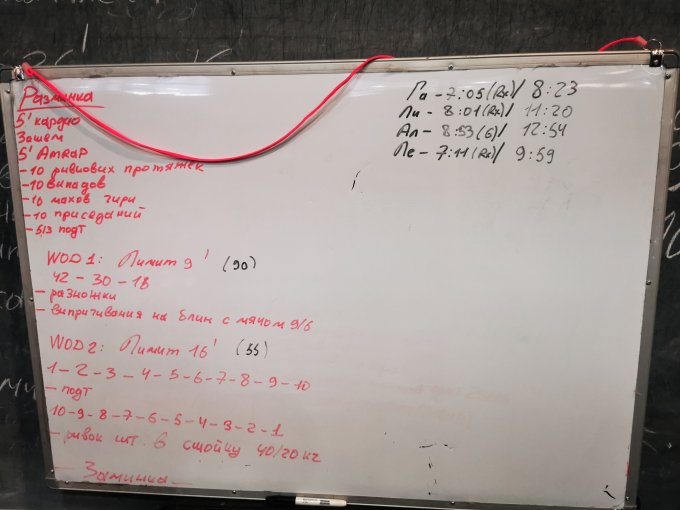 Разминка
5' кардио
Зашем
5' AmRaP
-10 ривиовых протяжек
-10 випадов
-10 махов гири
-10 приседаний
-5/3 подт
WOD 1: Лимит 9' (90)
42 - 30 - 18
- разножки
- випригивания на блин с мячом 9/6
WOD 2: Лимит 16' (55)
1 - 2 - 3 - 4 - 5 - 6 - 7 - 8 - 9 - 10
- подт
10 - 9 - 8 - 7 - 6 - 5 - 4 - 3 - 2 - 1
- ривок шт. в стойку 40/20 кг
- Заминка -
Га - 7:05 (Rx) / 8:23
Ли - 8:01 (Rx) / 11:20
Ал - 8:53 (6) / 12:54
Ле - 7:11 (Rx) / 9:59